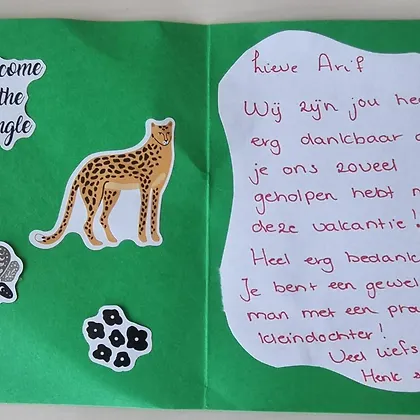 come
the
ngle
Lieve Arif
Wij zijn jou hee
erg dankbaar d
je ons zoveel
geholpen hebt m
deze vakantie!
Heel erg bedank
Je bent een gewel
man met een pra
kleindochter!
Veel liefs
Henk